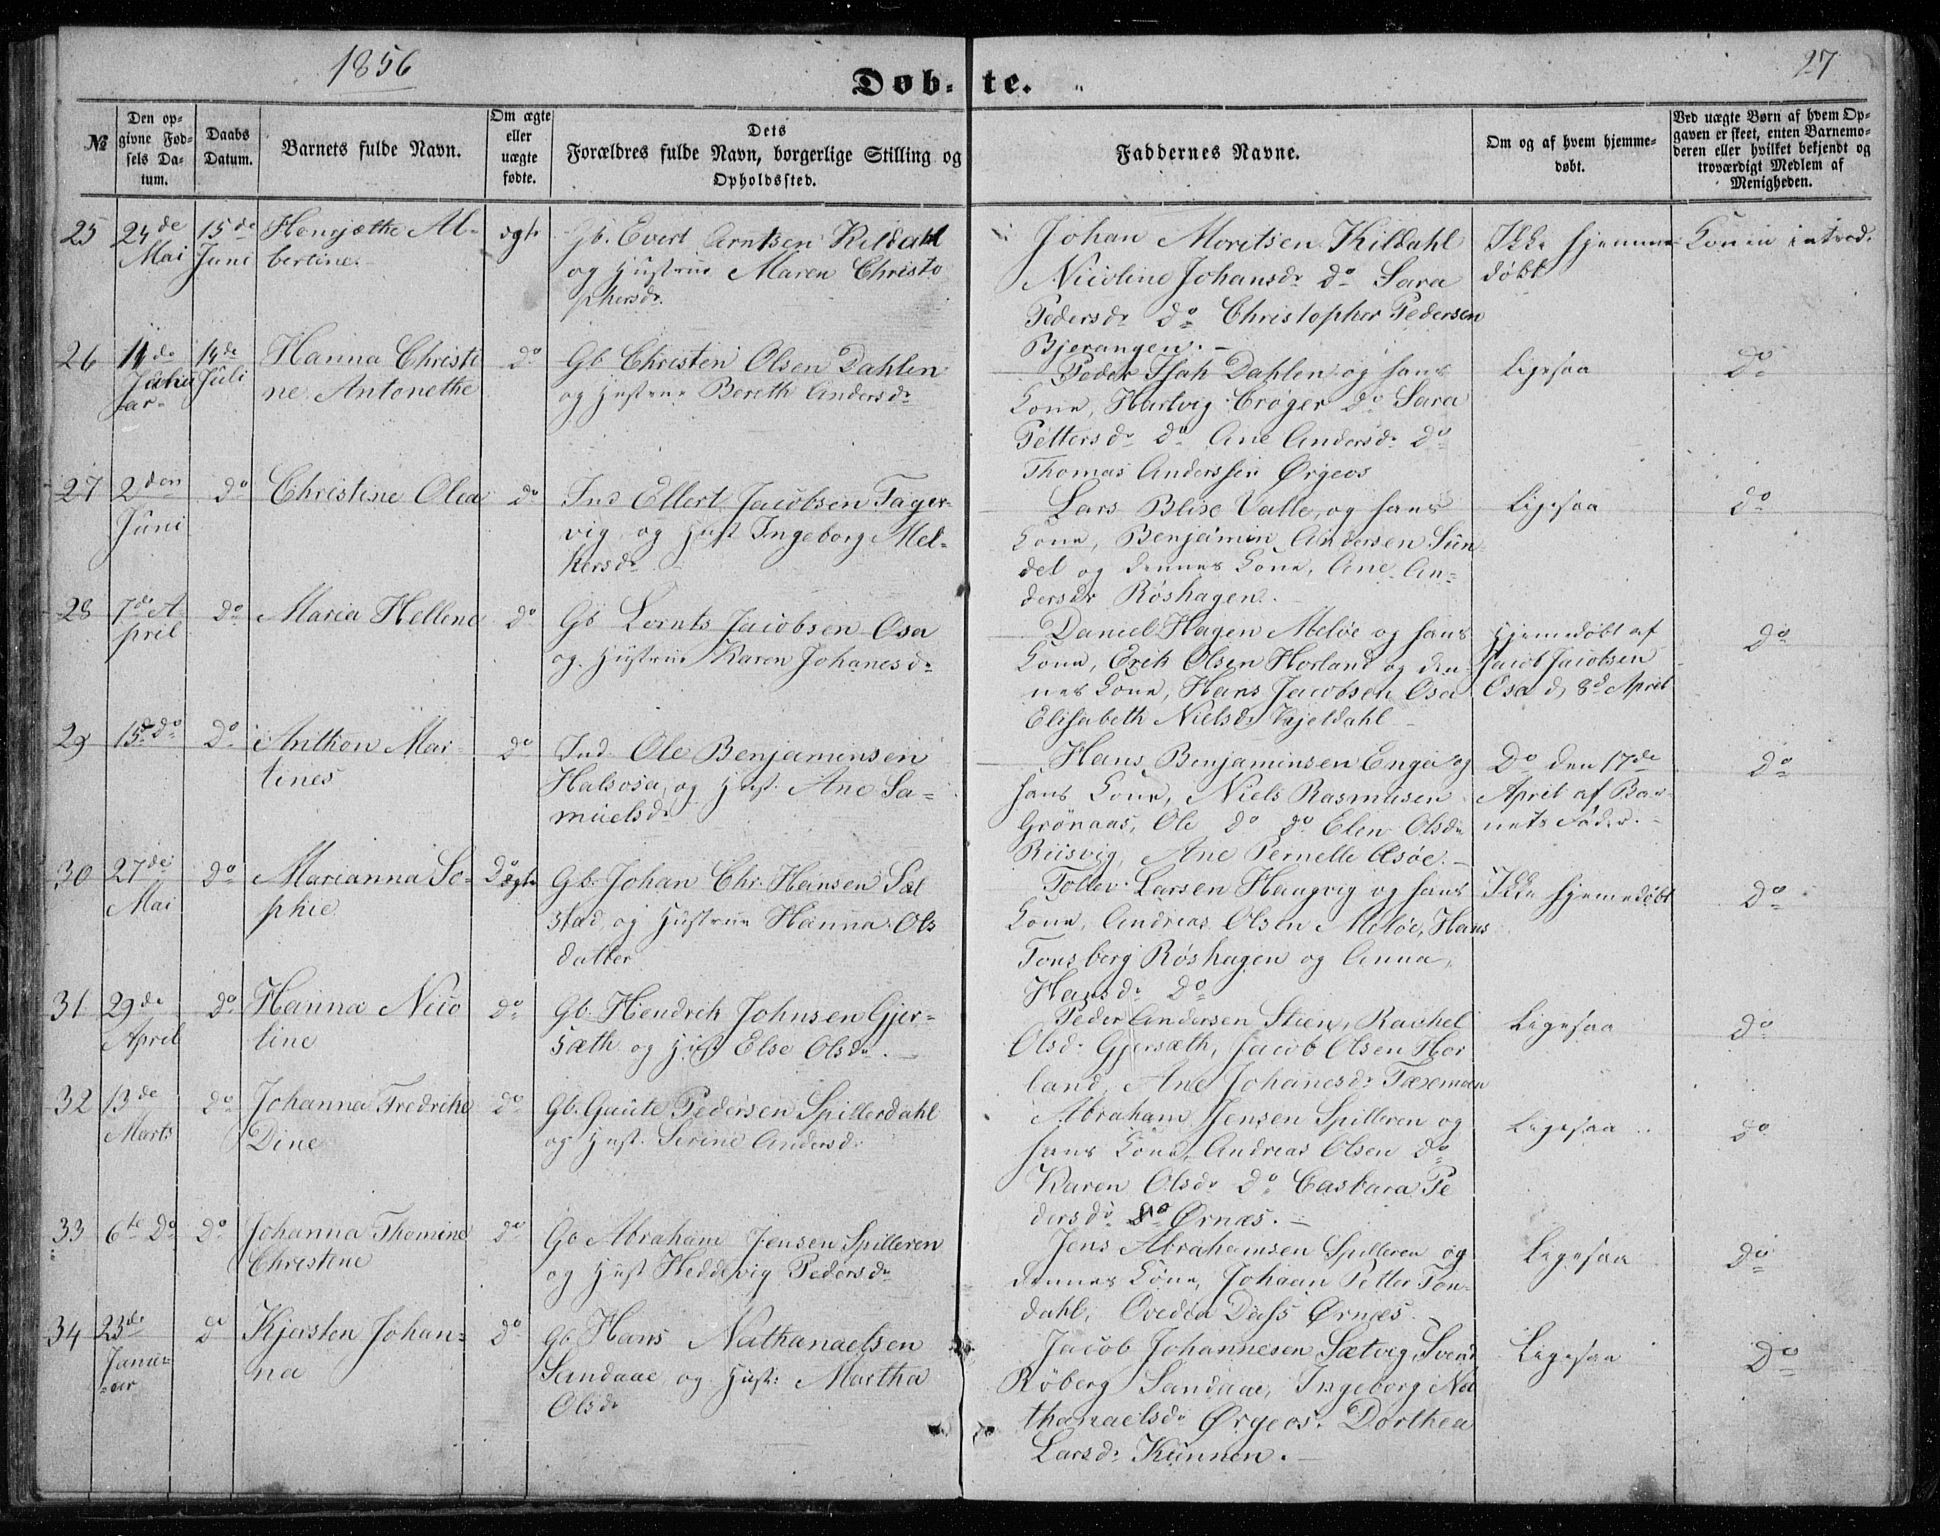 1856
27
Døb-te.
№
Den op-
givne Fød-
sels Da-
tum.
Daabs
Datum.
Barnets fulde Navn.
Om ægte
eller
uægte
fødte.
Dets
Forældres fulde Navn, borgerlige Stilling og
Opholdssted.
Faddernes Navne.
Om og af hvem hjemme-
døbt.
Ved uægte Børn af hvem Op-
gaven er skeet, enten Barnemo-
deren eller hvilket bekjendt og
troværdigt Medlem af
Menigheden.
25
24de
Mai
15de
Juni
Henjethe Al-
bertine.
ægte
Gb. Evert Arntsen Kildahl
og Hustrue Maren Christo
phersdr
Johan Moritsen Kildahl
Nicoline Johansdr do Sara
Pedersdr do Christopher Pedersen
Bjerangen.
Ikke hjemme
døbt
Konen introd.
26
11de
Januar
14de
Juli
Hanna Christi
ne Antonethe
do
Gb Christen Olsen Dahlen
og Hustrue Bereth Andersdr
Peder Isak Dahlen og hans
Kone, Hartvig Crøger do Sara
Pettersdr do Ane Andersdr do
Thomas Anderssen Ørgeos
Ligesaa
do
27
2den
Juni
do
Christine Olea
do
Ind Ellert Jacobsen Tager-
vig og Hust Ingeborg Mel-
kersdr
Lars Blise Valle, og hans
Kone, Benjamin Andersen Sun-
det og dennes Kone, Ane An-
dersdr Røshagen.
Ligesaa
do
28
7de A-
pril
do
Maria Hellene
do
Gb Lornts Jacobsen Osa
og Hustrue Karen Johanesdr
Daniel Hagen Meløe og hans
Kone, Erik Olsen Horland og den-
nes Kone, Hans Jacobsen Osa
Elisabeth Nielsdr Kjeldahl
Hjemedøbt af
Jacob Jacobsen
Osa d. 8de April
do
29
15de do
do
Anthon Mar-
tines
do
Ind. Ole Benjaminsen
Halsosa, og Hust. Ane Sa-
muelsdr
Hans Benjaminsen Enga og
hans Kone, Niels Rasmusen
Grønaas, Ole do do Elen Olsdr
Reisvig, Ane Pernelle Æsøe.
Do den 17de
April af Bar-
nets Fader.
do
30
27de
Mai
do
Marianna So-
phie
do ægte
Gb. Johan Chr. Hansen Sæl
stad, og Hustrue Hanna Ols
datter
Tollev Larsen Haugvig og hans
Kone, Andreas Olsen Meløe, Hans
Tonsberg Røshagen og Anna
Hansdr do
Ikke hjemedøbt
do
31
29de
April
do
Hanna Nico
line
do
Gb. Hendrik Johnsen Gjer-
sæth og Hust Else Olsdr.
Peder Andersen Stien, Rachel
Olsdr Gjersæth, Jacob Olsen Hor
land, Ane Johanesdr Tæremoen
Ligesaa
do
32
13de
Marts
do
Johanna Fredrike
Dine
do
Gb. Gaute Pedersen Spillerdahl
og Hust. Serine Andersdr
Abraham Jensen Spilleren og
hans Kone, Andreas Olsen do
Karen Olsdr do Casbara Pe
dersdr Ørnæs.
Ligesaa
do
33
6te do
do
Johanna Thomine
Christine
do
Gb Abraham Jensen Spilleren
og Hust Heddevig Pedersdr
Jens Abrahamsen Spilleren og
dennes Kone, Johaan Petter Fon-
dahl, Ovedia Dass Ørnæs
Ligesaa
do
34
23de
Janu-
ar
do
Kjersten Johan-
na
do
Gb. Hans Nathanaelsen
Sandaae, og Hust: Martha
Olsdr
Jacob Johannesen Sætvig, Svend
Røberg Sandaae, Ingeborg Na
thanaelsdr Ørgeos. Dorthea
Larsdr Kunnen.
Ligesaa
Do